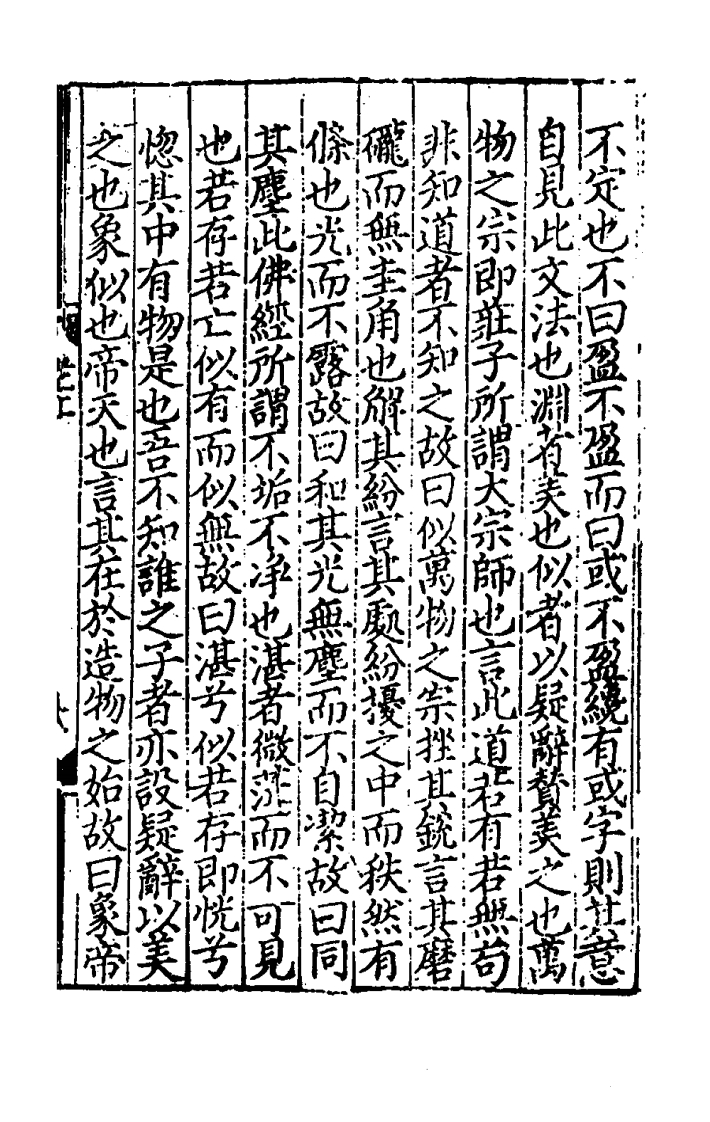 不定也不曰盈不盈而曰或不盈纔有或字則其意
自見此文法也淵者美也似者以疑辭賛美之也萬
物之宗即莊子所謂大宗師也言此道若有若無苟
非知道者不知之故曰似萬物之宗挫其銳言其磨
礲而無圭角也解其紛言其處紛擾之中而秩然有
條也光而不露故曰和其光無塵而不自潔故曰同
其塵此佛經所謂不垢不净也湛者微茫而不可見
也若存若亡似有而似無故曰湛兮似若存即恍兮
惚其中有物是也吾不知誰之子者亦設疑辭以美
之也象似也帝天也言其在於造物之始故曰象帝